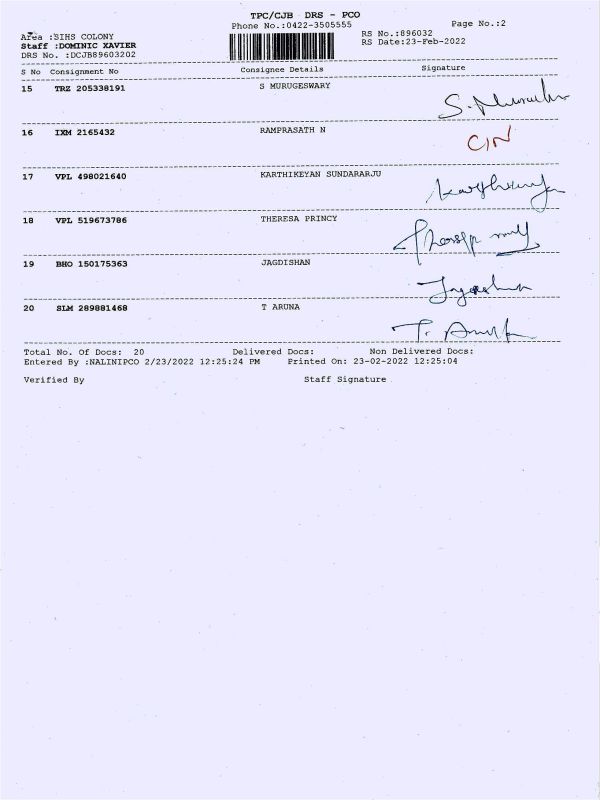 TPC/CJB DRS - PCO
Phone No.:0422-3505555
Page No.:2
Area :SIHS COLONY
RS No.:896032
Staff :DOMINIC XAVIER
RS Date:23-Feb-2022
DRS No. :DCJB89603202
S No Consignment No Consignee Details Signature
15 TRZ 205338191 S MURUGESWARY
16 IXM 2165432 RAMPRASATH N
CIN
17 VPL 498021640 KARTHIKEYAN SUNDARARJU
18 VPL 519673786 THERESA PRINCY
19 BHO 150175363 JAGDISHAN
20 SLM 289881468 T ARUNA
Total No. Of Docs: 20 Delivered Docs: Non Delivered Docs:
Entered By :NALINIPCO 2/23/2022 12:25:24 PM Printed On: 23-02-2022 12:25:04
Verified By Staff Signature